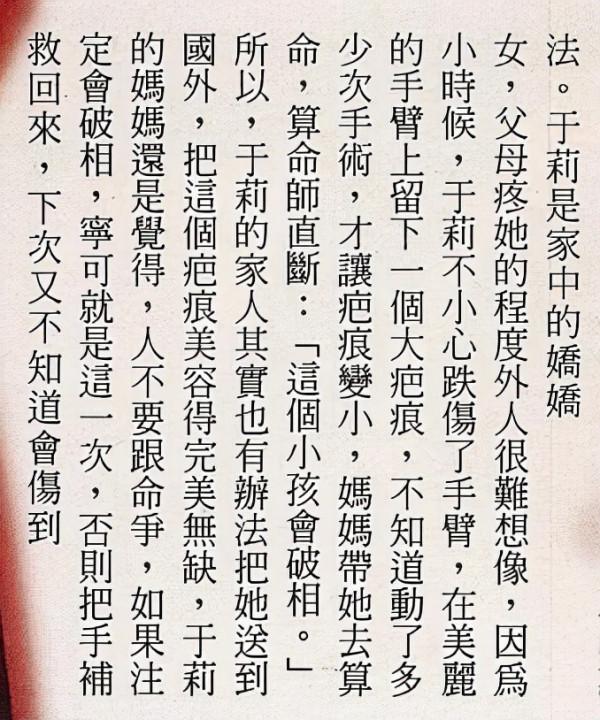 法。于莉是家中的嬌嬌
女，父母疼她的程度外人很難想像，因爲
小時候，于莉不小心跌傷了手臂，在美麗
的手臂上留下一個大疤痕，不知道動了多
少次手術，才讓疤痕變小，媽媽帶她去算
命，算命師直斷：「這個小孩會破相。」
所以，于莉的家人其實也有辦法把她送到
國外，把這個疤痕美容得完美無缺，于莉
的媽媽還是覺得，人不要跟命爭，如果注
定會破相，寧可就是這一次，否則把手補
救回來，下次又不知道會傷到